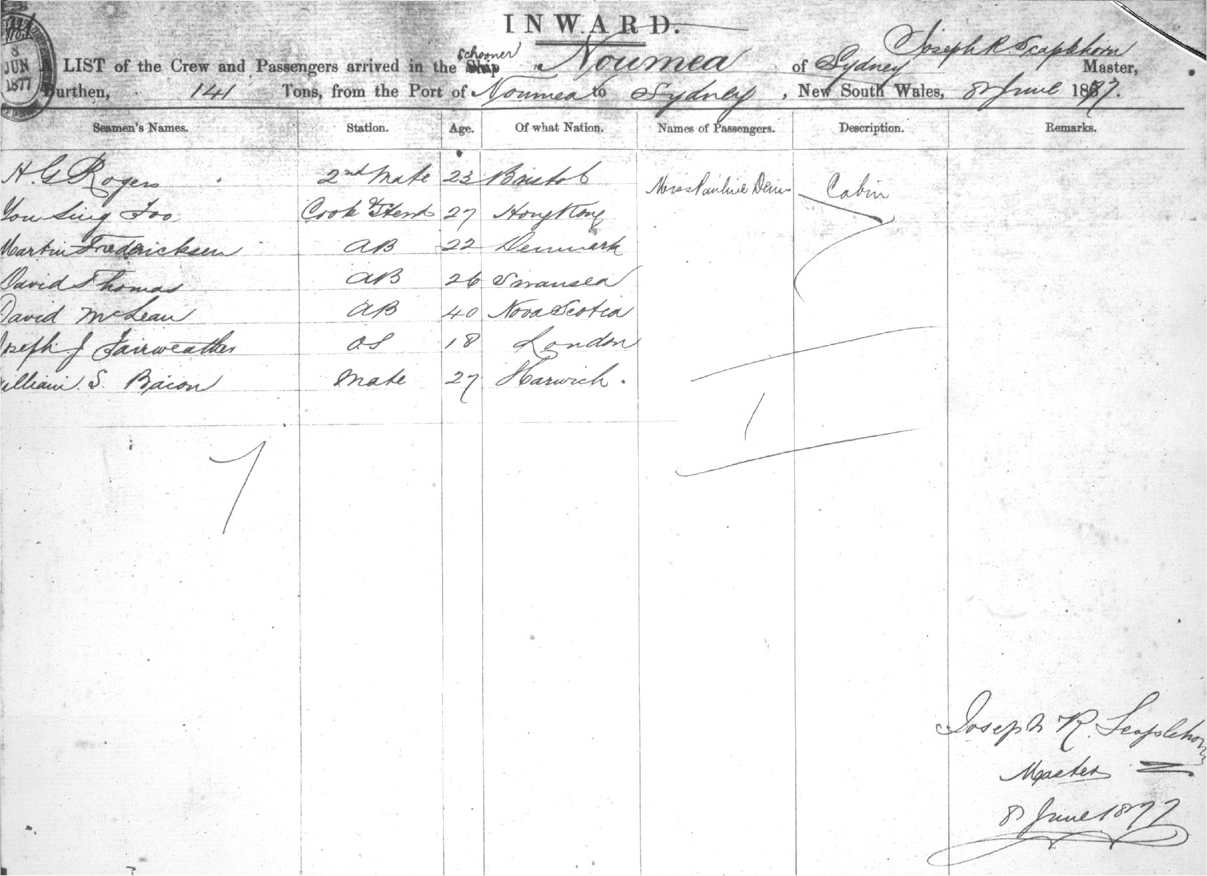 INWARD.
8
JUN
1877
Schooner
Joseph R. Scaplehorn
A LIST of the Crew and Passengers arrived in the Ship Noumea of Sydney Master,
Burthen, 141 Tons, from the Port of Noumea to Sydney, New South Wales, 8 June 1877.
Seamen's Names. Station. Age. Of what Nation. Names of Passengers. Description. Remarks.
H. G Rogers 2nd Mate 23 Bristol Pauline Cabin
You Sing Foo Cook & Stewd 27 Hong Kong
Martin Fredericksen AB 22 Denmark
David Thomas AB 26 Swansea
David McLean AB 40 Nova Scotia
Joseph J Fairweather OS 18 London
William S. Bacon Mate 27 Harwich.
7
1
Joseph R. Scaplehorn
Master
8 June 1877